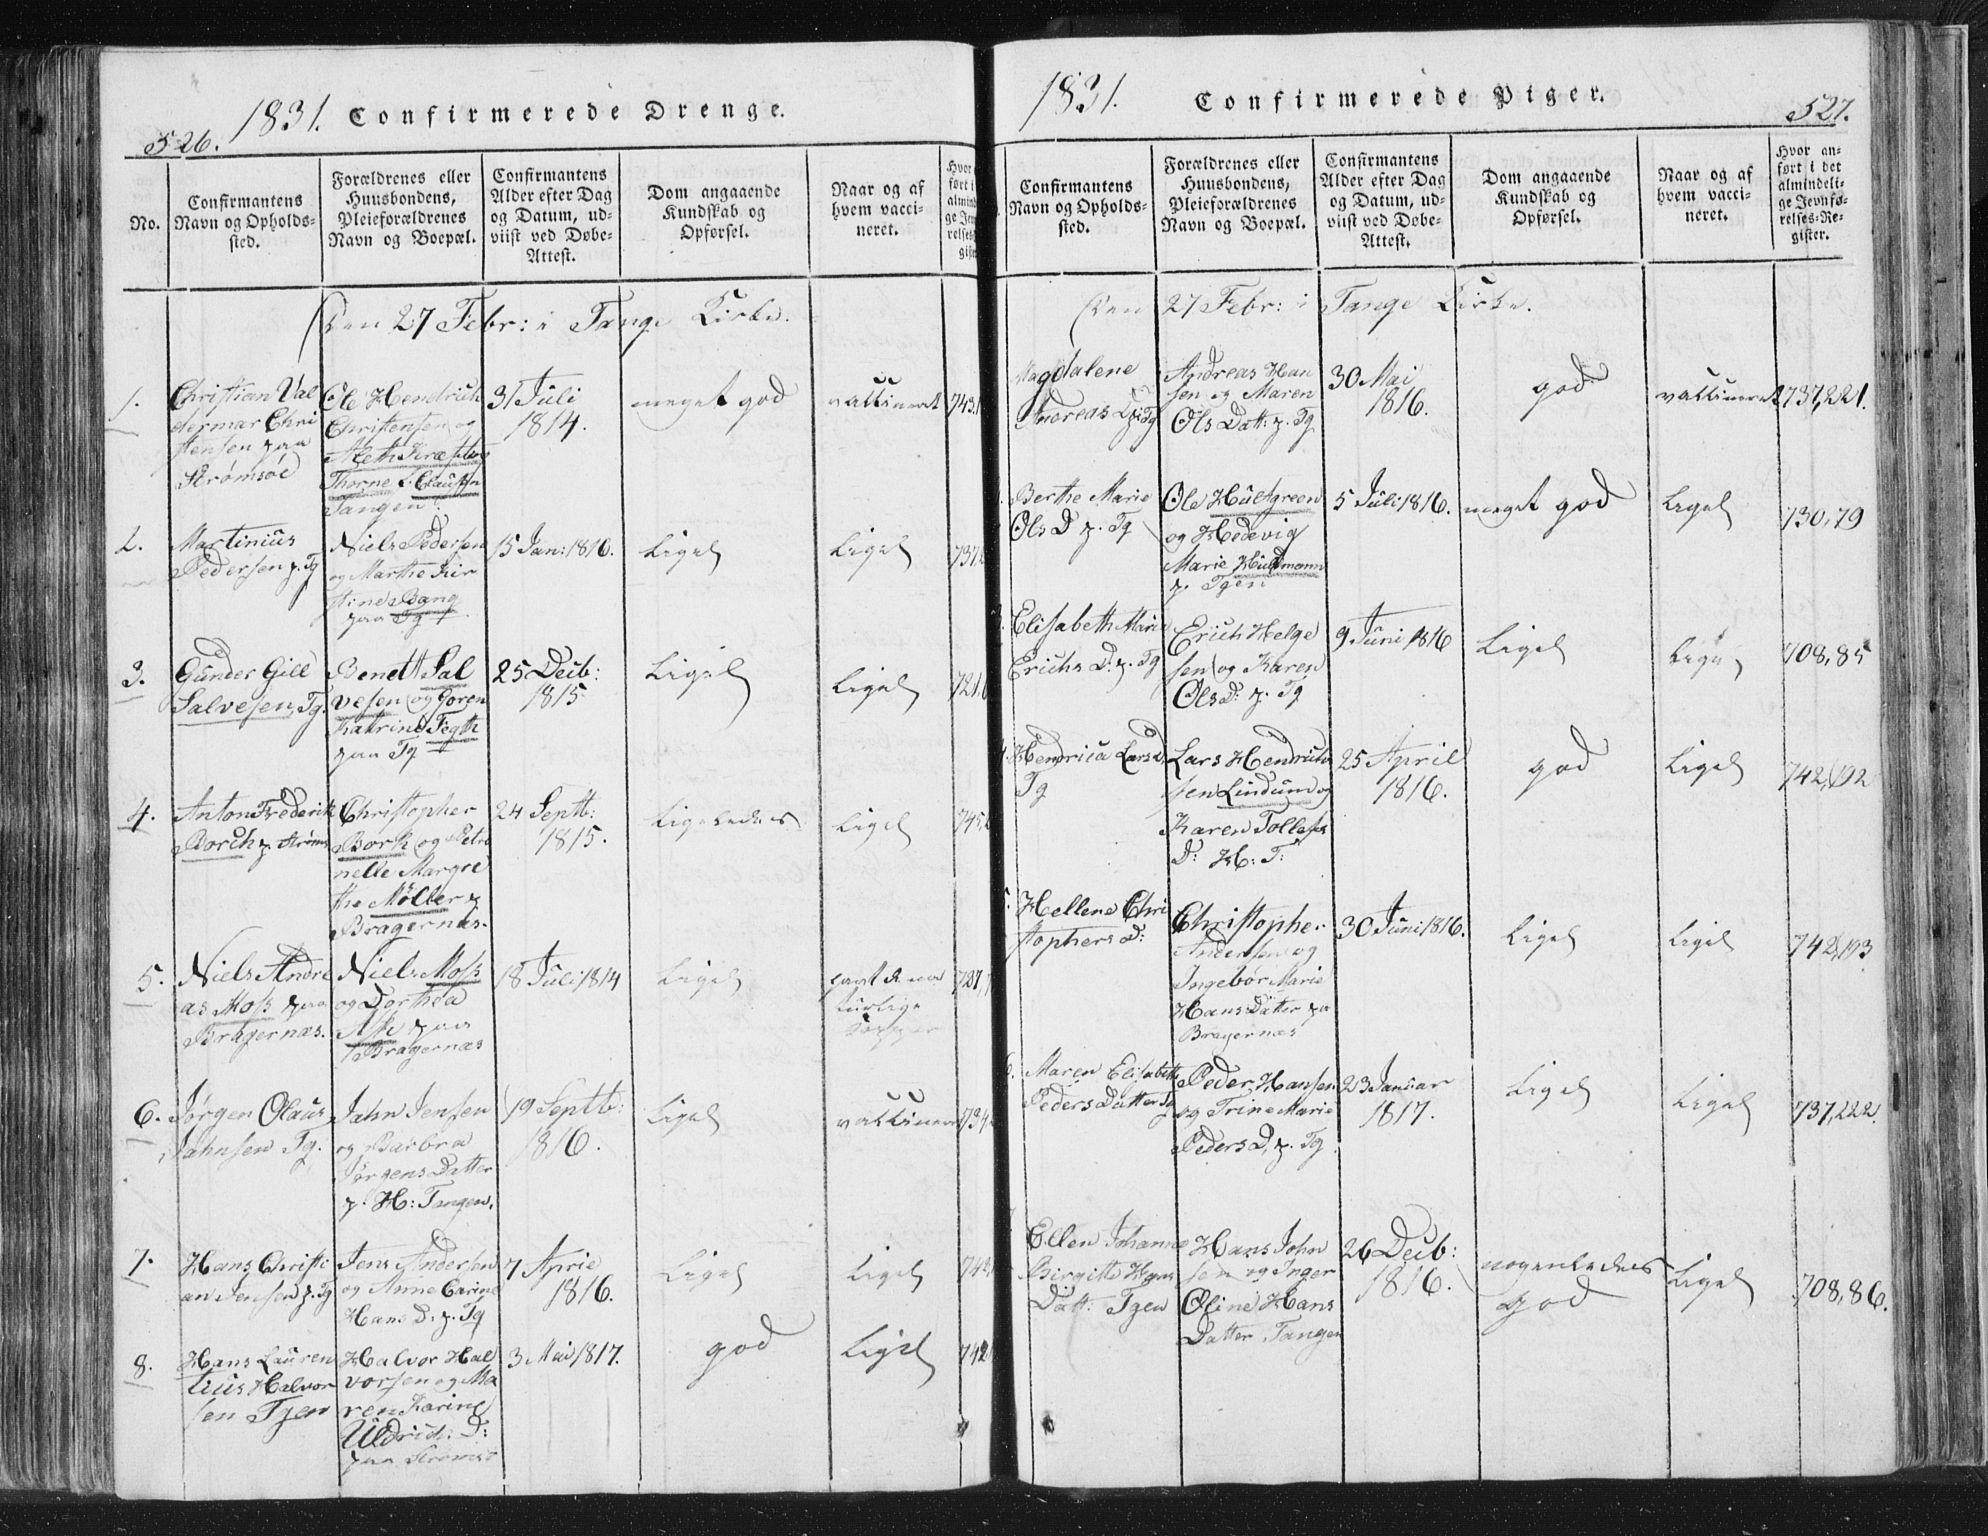 526.
1831. Confirmerede Drenge.
No.
Confirmantens
Navn og Opholds-
sted.
Forældrenes eller
Huusbondens,
Pleieforældrenes
Navn og Boepæl.
Confirmantens
Alder efter Dag
og Datum, ud-
viist ved Døbe-
Attest.
Dom angaaende
Kundskab og
Opførsel.
Naar og af
hvem vacci-
neret.
Hvor
ført i
almind
ge Jevn
relses-
gister
Den 27 Febr: i Tange Kirke.
1.
Christian Val
dermar Chri
stensen paa
Strømsøe
Ole Hendrich
Christensen og
Thorne L. Clausen
Tangen
31 Juli
1814.
meget god
vaccineret
743,1
2.
Martinius
Pedersen p. Tg
Niels Pedersen
og Marthe Kir
stine Bang
paa Tg
15 Jan: 1816.
Ligel
Ligel
737,
3.
Gunder Gill
Salvesen, Tg.
Benett Sal
vesen og Goren
Katrine Fegth
paa Tg
25 Decb:
1815.
Ligel
Ligel
721,
4.
Anton Frederik
Borch p. Strøms
Christopher
Bork og Petro
nelle Margre
the Möller p
Bragernæs.
24 Septb:
1815.
Ligeledes
Ligel
745,
5.
Niels Andre
as Moss paa
Bragernæs.
Niels Moss
og Dorthea
Ask paa
Bragernæs
18 Juli 1814
Ligel
havt de na
turlige
Kopper
727,
6.
Jørgen Olaus
Jahnsen Tg.
Jahn Jensen
og Barbra
Jørgens Datter
p. H: Tangen.
19 Septb:
1816.
Ligel
vaccineret
734
7.
Hans Christi
an Jensen p. Tg
Jens Andersen
og Anne Carine
Hans D. p. Tg
7 April
1816.
Ligel
Ligel
742
8.
Hans Lauren
tius Halvor
sen Tgen
Halvor Hal
vorsen og Ma
ren Karine
Uldrich: D:
paa Strømsø
3 Mai 1817.
god
Ligel
742
1831. Confirmerede Piger.
527.
Confirmantens
Navn og Opholds-
sted.
Forældrenes eller
Huusbondens,
Pleieforældrenes
Navn og Boepæl.
Confirmantens
Alder efter Dag
og Datum, ud-
viist ved Døbe-
Attest.
Dom angaaende
Kundskab og
Opførsel.
Naar og af
hvem vacci-
neret.
Hvor an-
ført i det
almindeli-
ge Jevnfø-
relses-Re-
gister.
Den 27 Febr: i Tange Kirke.
Magdalene
Andreas D. p. Tg
Andreas Han
sen og Maren
Ols Datt: p. Tg
30 Mai
1816.
god
vaccineret
737,221.
Berthe Marie
Ols D p. Tg
Ole Hultgreen
og Hedevig
Marie Huldmann
p. Tgen
5 Juli 1816.
meget god
Ligel
730,79
Elisabeth Marie
Erichs D. p. Tg
Erich Helge
sen og Karen
Ols D: p. Tg
9 Juni 1816
Ligel
Ligel
708,85
Hendrica Lars D
Tg
Lars Hendrich
sen Lindum og
Karen Tollefs
D: H: T:
25 April
1816.
god
Ligel
742,192
Hellene Chri
stophers D:
Christopher
Andersen og
Ingebør Marie
Hans Datter paa
Bragernæs
30 Juni 1816.
Ligel
Ligel
742,193
6.
Maren Elisabeth
Peders Datter Tg
Peder Hansen
og Trine Marie
Peders D. p. Tg
23 Januar
1817.
Ligel
Ligel
737,222.
Ellen Johanne
Birgitte Hans
Datt: Tgen
Hans John
sen og Inger
Oline Hans
Datter Tangen
26 Decb:
1816.
nogenledes
god
Ligel
708,86.